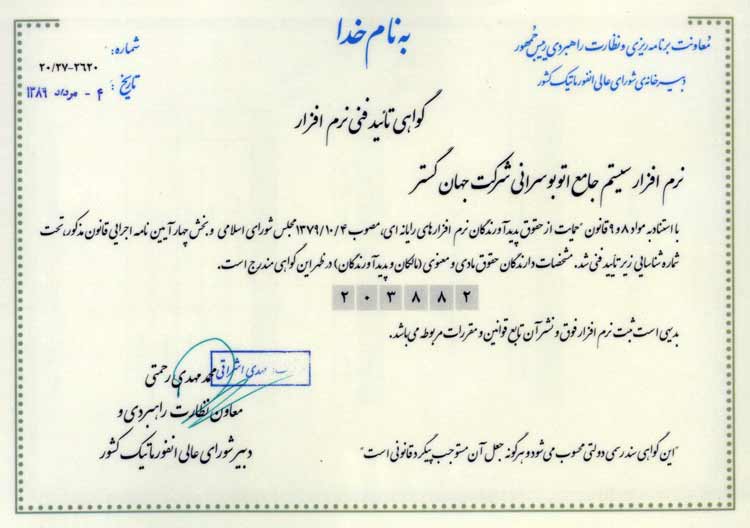 به نام خدا
معاونت برنامه ریزی و نظارت راهبردی رییس جمهور
دبیرخانه‌ی شورای عالی انفورماتیک کشور
شماره:
۲۰/۲۷-۲۶۲۰
تاریخ :
۴ - مرداد ۱۳۸۹
گواهی تائید فنی نرم افزار
نرم افزار سیستم جامع اتوبوسرانی شرکت جهان گستر
با استناد به مواد ۸ و ۹ قانون "حمایت از حقوق پدیدآورندگان نرم افزارهای رایانه ای، مصوب ۱۳۷۹/۱۰/۴ مجلس شورای اسلامی و بخش چهار آیین نامه اجرایی قانون مذکور، تحت
شماره شناسایی زیر تأیید فنی شد. مشخصات دارندگان حقوق مادی و معنوی (مالکان و پدیدآورندگان) در ظهر این گواهی مندرج است.
۲۰۳۸۸۲
بدیهی است ثبت نرم افزار فوق و نشر آن تابع قوانین و مقررات مربوطه می‌باشد.
مهدی اشراقی
محمد مهدی رحمتی
معاون نظارت راهبردی و
دبیر شورای عالی انفورماتیک کشور
"این گواهی سند رسمی دولتی محسوب می‌شود و هرگونه جعل آن مستوجب پیگرد قانونی است"